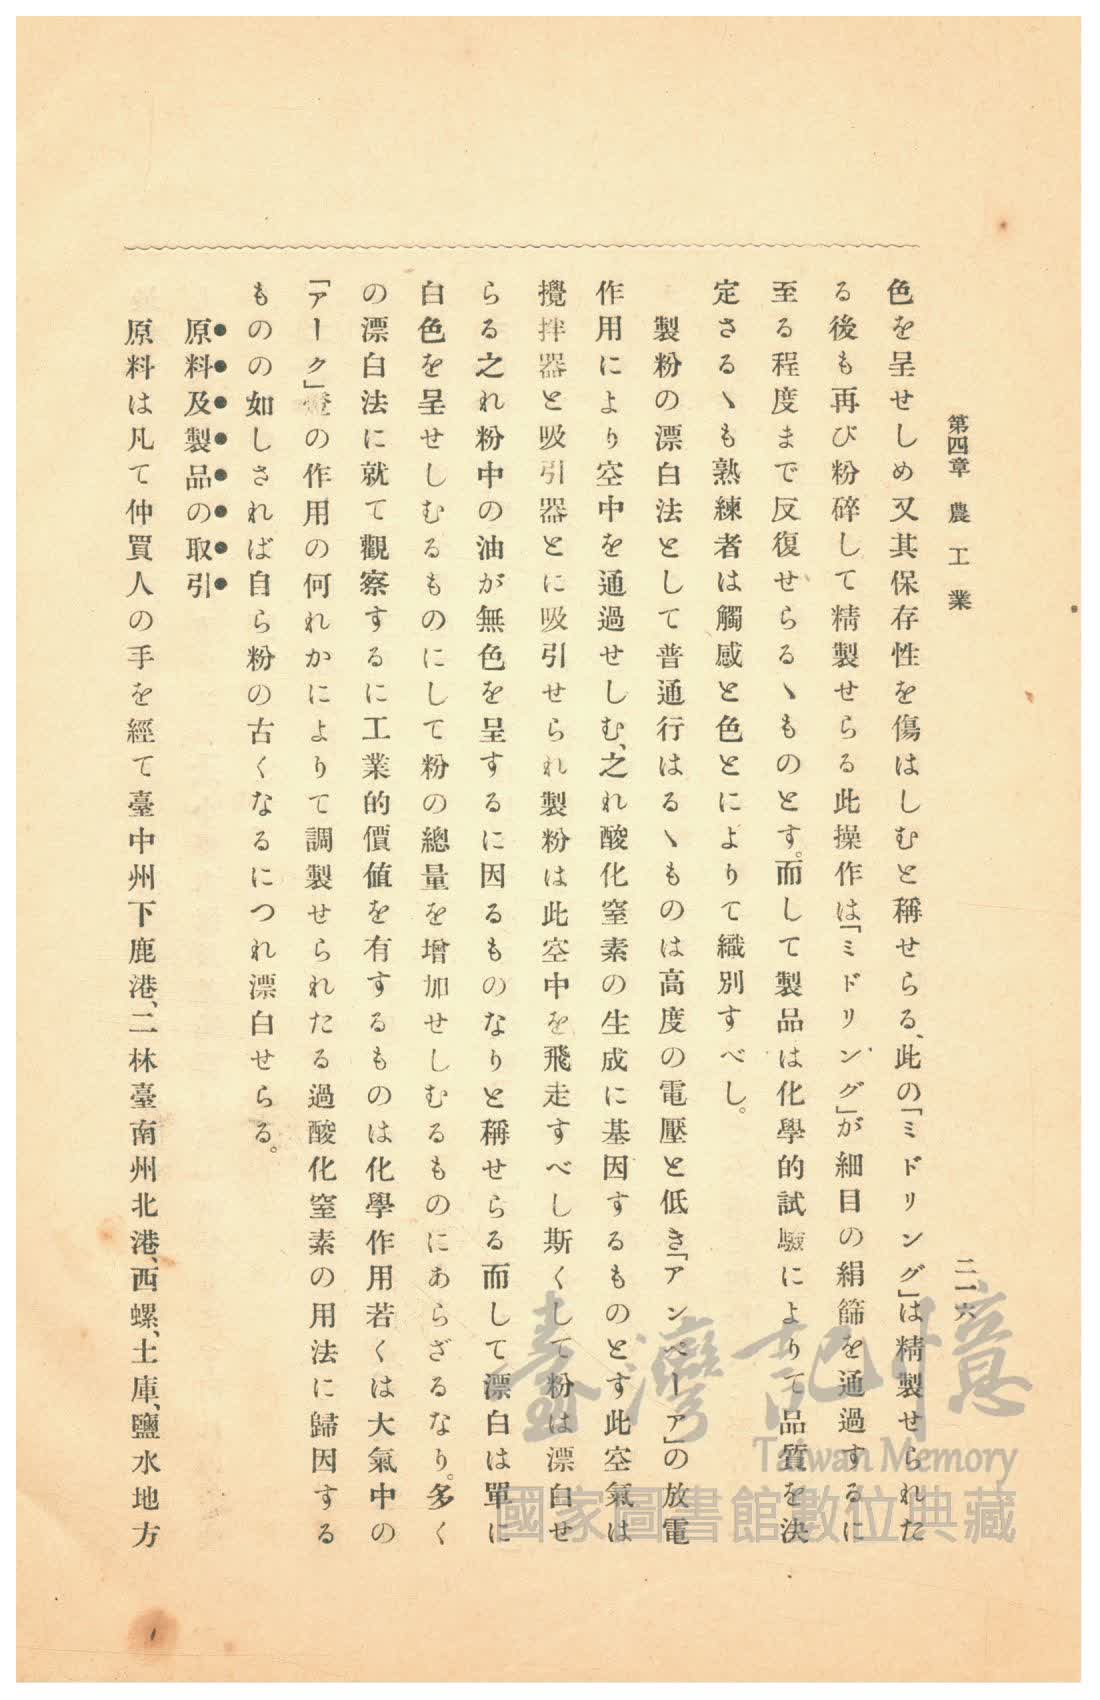 第四章 農工業
二一六
色を呈せしめ又其保存性を傷はしむと稱せらる、此の「ミドリング」は精製せられた
る後も再び粉碎して精製せらる此操作は「ミドリング」が細目の絹篩を通過するに
至る程度まで反復せらるゝものとす。而して製品は化學的試驗によりて品質を決
定さるゝも熟練者は觸感と色とによりて織別すべし。
製粉の漂白法として普通行はるゝものは高度の電壓と低き「アンペーア」の放電
作用により空中を通過せしむ、之れ酸化窒素の生成に基因するものとす此空氣は
攪拌器と吸引器とに吸引せられ製粉は此空中を飛走すべし斯くして粉は漂白せ
らる之れ粉中の油が無色を呈するに因るものなりと稱せらる而して漂白は單に
白色を呈せしむるものにして粉の總量を增加せしむるものにあらざるなり。多く
の漂白法に就て觀察するに工業的價値を有するものは化學作用若くは大氣中の
「アーク」燈の作用の何れかによりて調製せられたる過酸化窒素の用法に歸因する
ものの如しされば自ら粉の古くなるにつれ漂白せらる。
原料及製品の取引
原料は凡て仲買人の手を經て臺中州下鹿港、二林臺南州北港、西螺、土庫、鹽水地方
臺灣記憶
Taiwan Memory
國家圖書館數位典藏